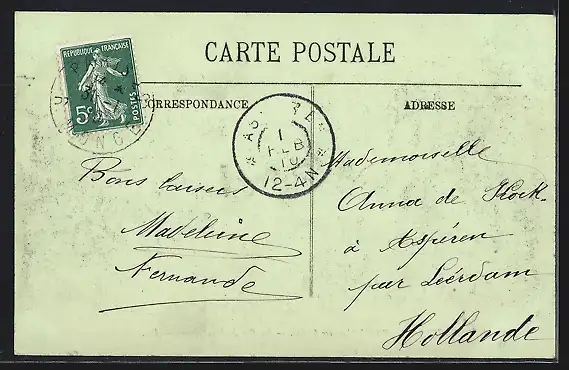 CARTE POSTALE
RÉPUBLIQUE FRANÇAISE
5c
POSTES
CORRESPONDANCE
ADRESSE
1
FEB
10
12-4N
Bons baisers
Madeleine
Fernande
Mademoiselle
Anna de Kock
à Aspéren
par Leérdam
Hollande